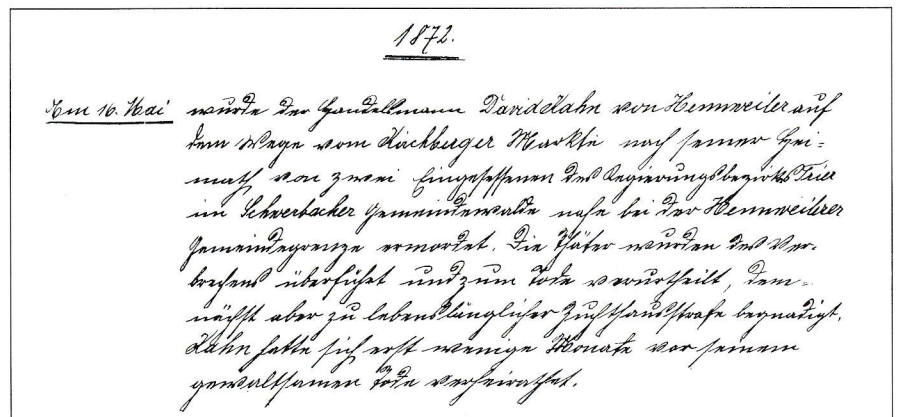 1872.
Am 16. Mai wurde der Handelsmann David Kahn von Hennweiler auf
dem Wege vom Kirchberger Markte nach seiner Hei-
math von zwei Eingesessenen des Regierungsbezirks Trier
im Schwerbacher Gemeindewalde nahe bei der Hennweilerer
Gemeindegrenze ermordet. Die Thäter wurden des Ver-
brechens überführt und zum Tode verurtheilt, dem-
nächst aber zu lebenslänglicher Zuchthausstrafe begnadigt.
Kahn hatte sich erst wenige Monate vor seinem
gewaltsamen Tode verheirathet.